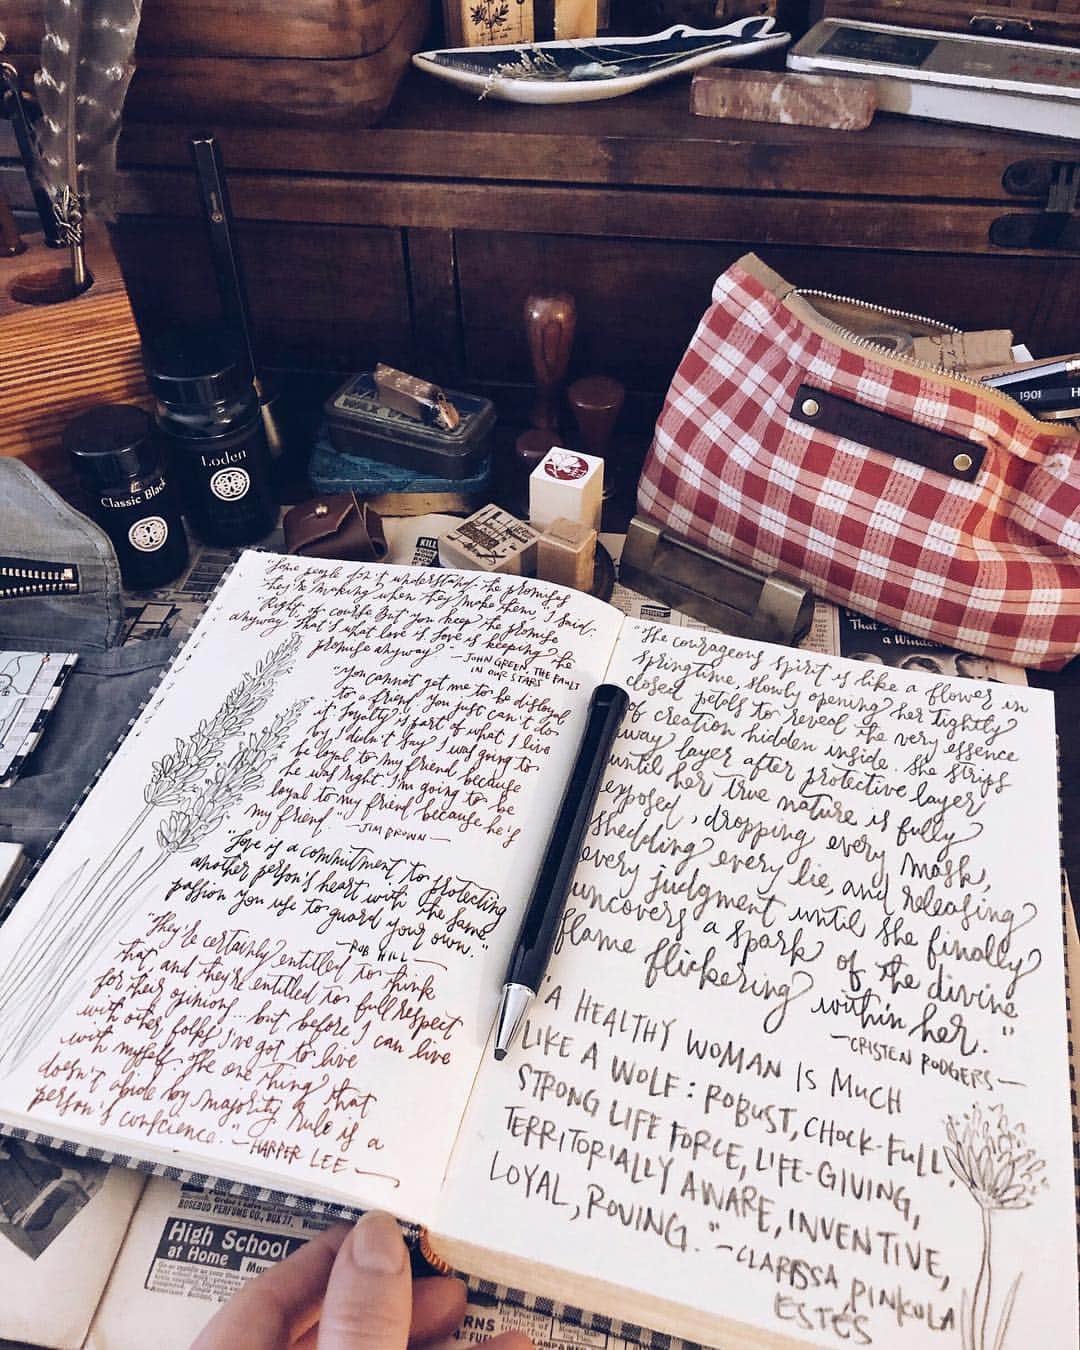 Loden
Classic Black
WAX
KILL
1901
That
a Window
"Some people don't understand the promises
they're making when they make them," I said.
"Right, of course. But you keep the promise
anyway. That's what love is. Love is keeping the
promise anyway."
—JOHN GREEN, THE FAULT
IN OUR STARS
"You cannot get me to be disloyal
to a friend. You just can't do
it. Loyalty is part of what I live
by. I didn't say I was going to
be loyal to my friend because
he was right. I'm going to be
loyal to my friend because he's
my friend." —JIM BROWN—
"Love is a commitment to protecting
another person's heart with the same
passion you use to guard your own."
—ROB HILL—
"They're certainly entitled to think
that, and they're entitled to full respect
for their opinions... but before I can live
with other folks I've got to live
with myself. The one thing that
doesn't abide by majority rule is a
person's conscience." —HARPER LEE—
"The courageous spirit is like a flower in
springtime, slowly opening her tightly
closed petals to reveal the very essence
of creation hidden inside. She strips
away layer after protective layer
until her true nature is fully
exposed, dropping every mask,
shedding every lie, and releasing
every judgment until she finally
uncovers a spark of the divine
flame flickering within her."
—CRISTEN RODGERS—
"A HEALTHY WOMAN IS MUCH
LIKE A WOLF: ROBUST, CHOCK-FULL,
STRONG LIFE FORCE, LIFE-GIVING,
TERRITORIALLY AWARE, INVENTIVE,
LOYAL, ROVING." —CLARISSA PINKOLA
ESTÉS
ROSEBUD PERFUME CO., BOX 77,
High School
at Home